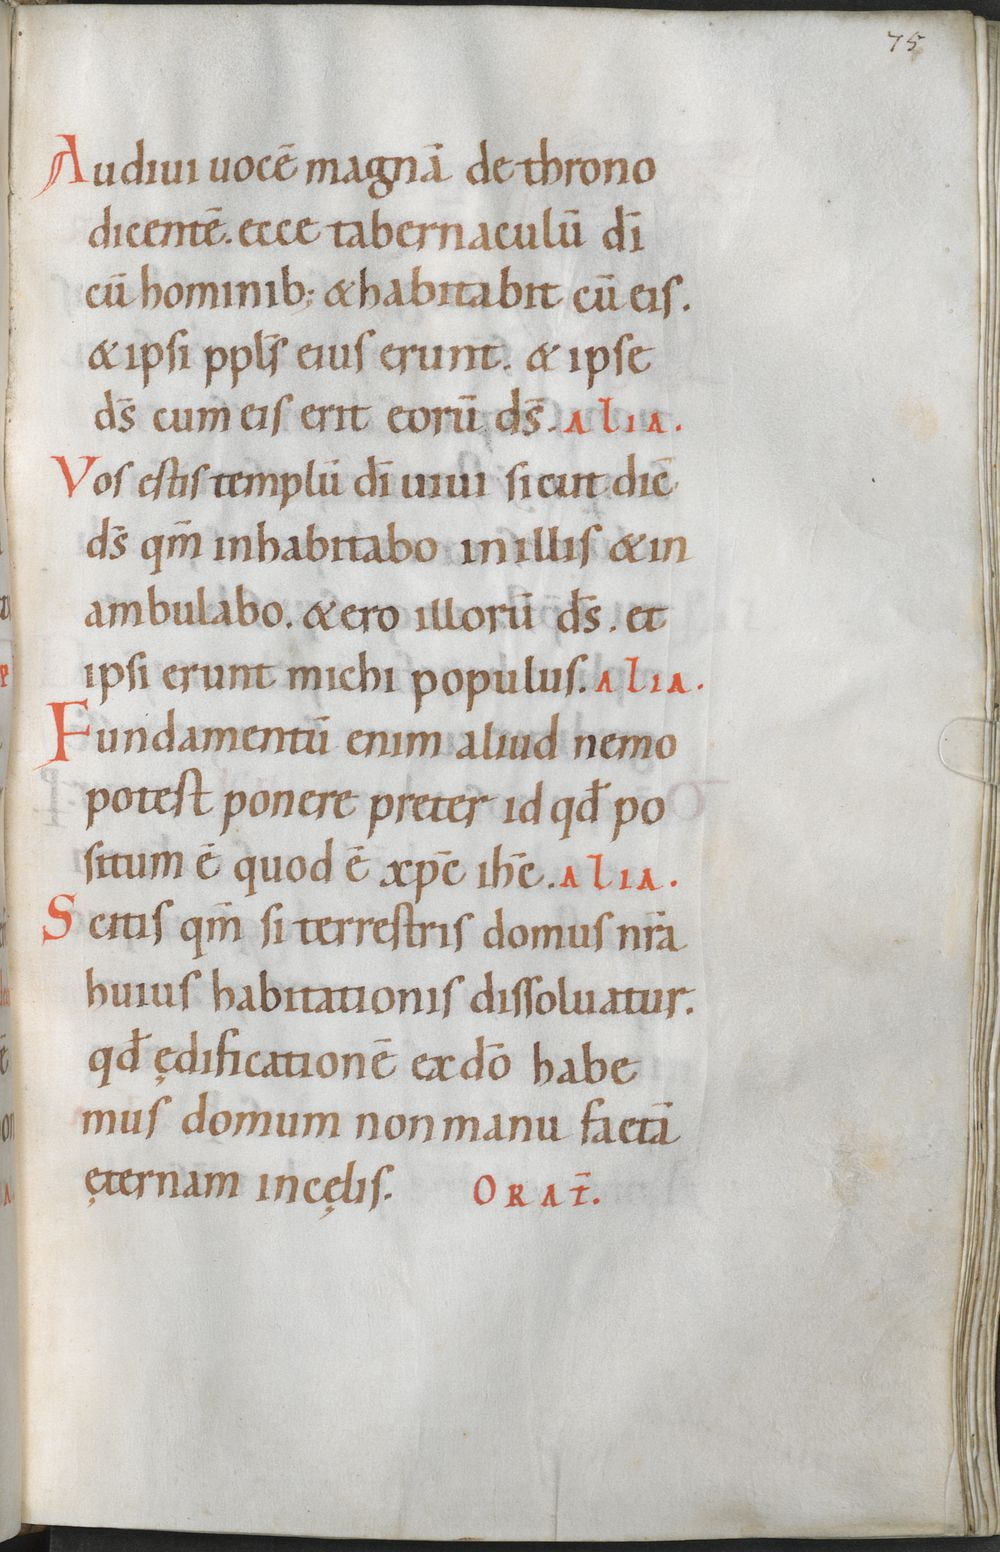 75
Audiui uocē magnā de throno
dicentē. ecce tabernaculū dī
cū hominib; & habitabit cū eis.
& ipsi ppl̄s eius erunt. & ipse
ds̄ cum eis erit eorū ds̄. ALIA.
Vos estis templū dī uiui sicut dic̄
ds̄ qm̄ inhabitabo in illis & in
ambulabo. & ero illorū ds̄. et
ipsi erunt michi populus. ALIA.
Fundamentū enim aliud nemo
potest ponere preter id qđ po
situm ē quod ē xpc̄ ihc̄. ALIA.
Scitis qm̄ si terrestris domus nr̄a
huius habitationis dissoluatur.
qđ ędificationē ex dō habe
mus domum non manu factā
ęternam in cęlis. ORAT̄.